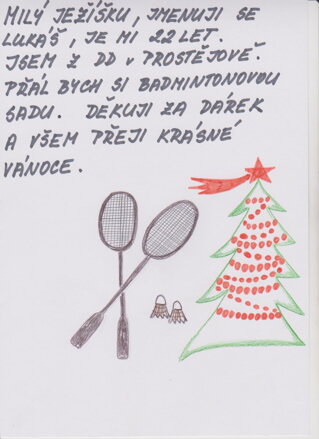 MILÝ JEŽÍŠKU, JMENUJI SE
LUKÁŠ, JE MI 22 LET.
JSEM Z DD V PROSTĚJOVĚ.
PŘÁL BYCH SI BADMINTONOVOU
SADU. DĚKUJI ZA DÁREK
A VŠEM PŘEJI KRÁSNÉ
VÁNOCE.